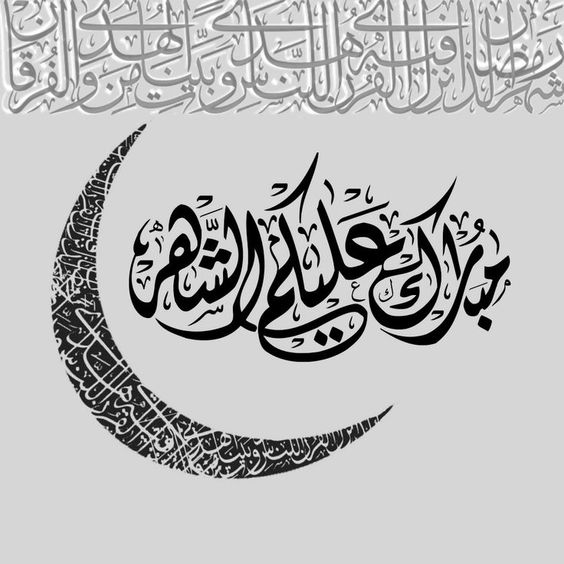 شهر رمضان الذي أنزل فيه القرآن هدى للناس وبينات من الهدى والفرقان
مُبارك عَليكم الشَّهر